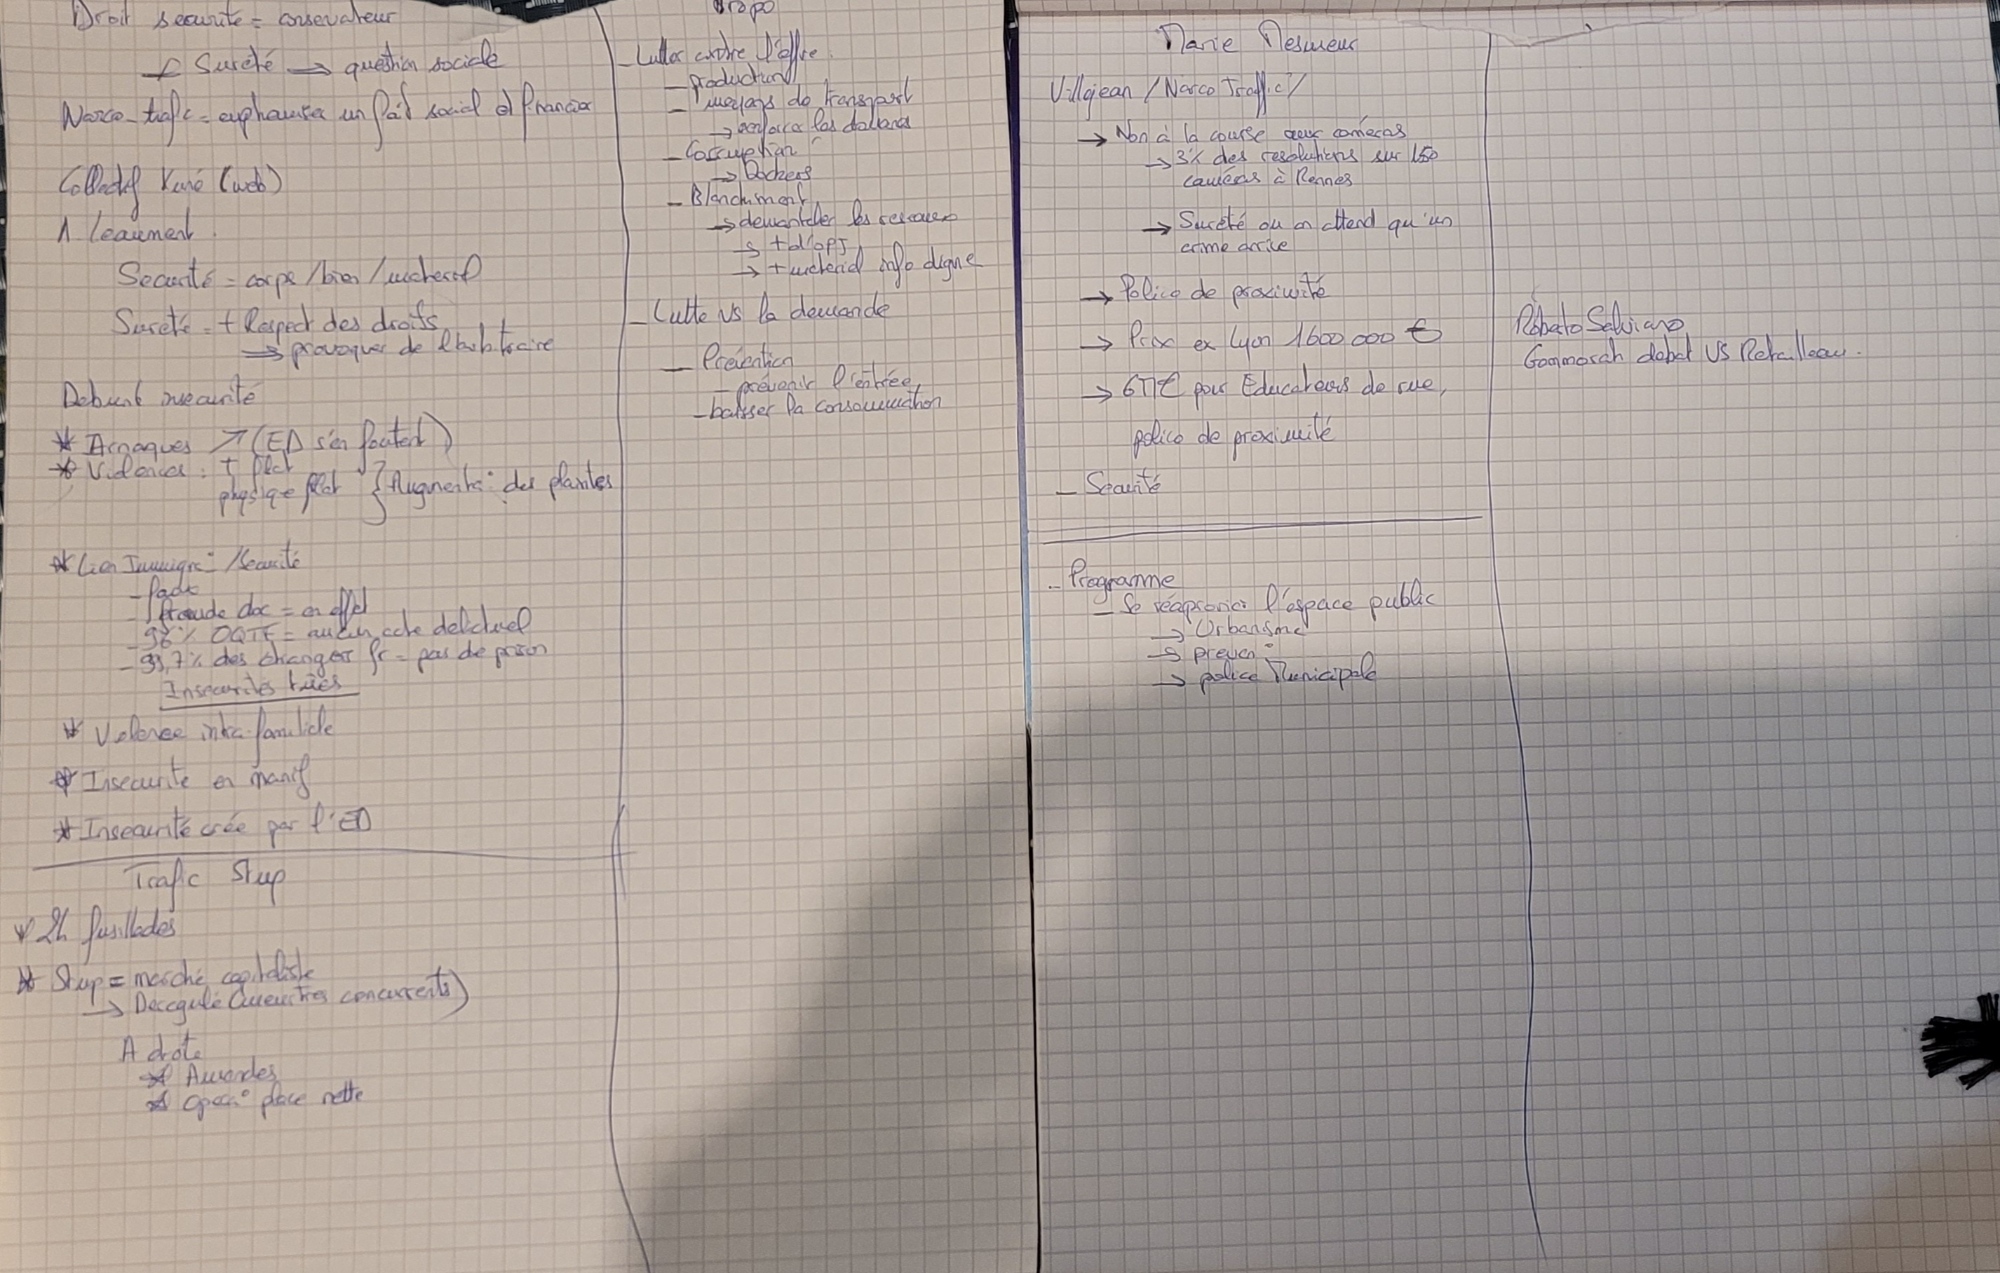 Droit sécurité = conservateur
≠ Sureté → question sociale
Narco-trafic = un fait social et financier
Collectif (web)
A Leaument
Securité = corps / bien / materiel
Sureté = + Respect des droits
→ de l'arbitraire
Debunk insecurité
* Arnaques ↗ (ED s'en foutent)
* Violences : + plat
physique plat } Augmentº des plaintes
* Lien Immigrº / Securité
- Pacte
- fraude doc = en effet
- 98 % OQTF = aucun acte delictuel
- 99,7 % des étrangers fr = pas de prison
Insecurités tues
* Violence intra-familiale
* Insecurité en manif
* Insecurité crée par l'ED
Trafic Stup
* 2h fusillades
* Stup = marché capitaliste
→ Derégulé (meurtres concurrents)
A droite
* Amendes
* Operº place nette
Propo
- Lutter contre l'offre
- production
- moyens de transport
→ renforcer les douanes
- Corruption
→ Dockers
- Blanchiment
→ demanteler les reseaux
→ + d'OPJ
→ + materiel info digne
- Lutte VS la demande
- Prévention
- prévenir l'entrée
- baisser la consommation
Marie Mesmeur
Villejean / Narco Traffic /
→ Non à la course aux caméras
→ 3% des resolutions sur 150
caméras à Rennes
→ Sureté ou on attend qu'un
crime arrive
→ Police de proximité
→ Prox ex Lyon 1600 000 €
→ 6M€ pour Educateurs de rue,
police de proximité
- Securité
- Programme
- Se réaproprier l'espace public
→ Urbanisme
→ prevenº
→ police Municipale
Robato Saviano
Gommorah debat VS Retailleau.